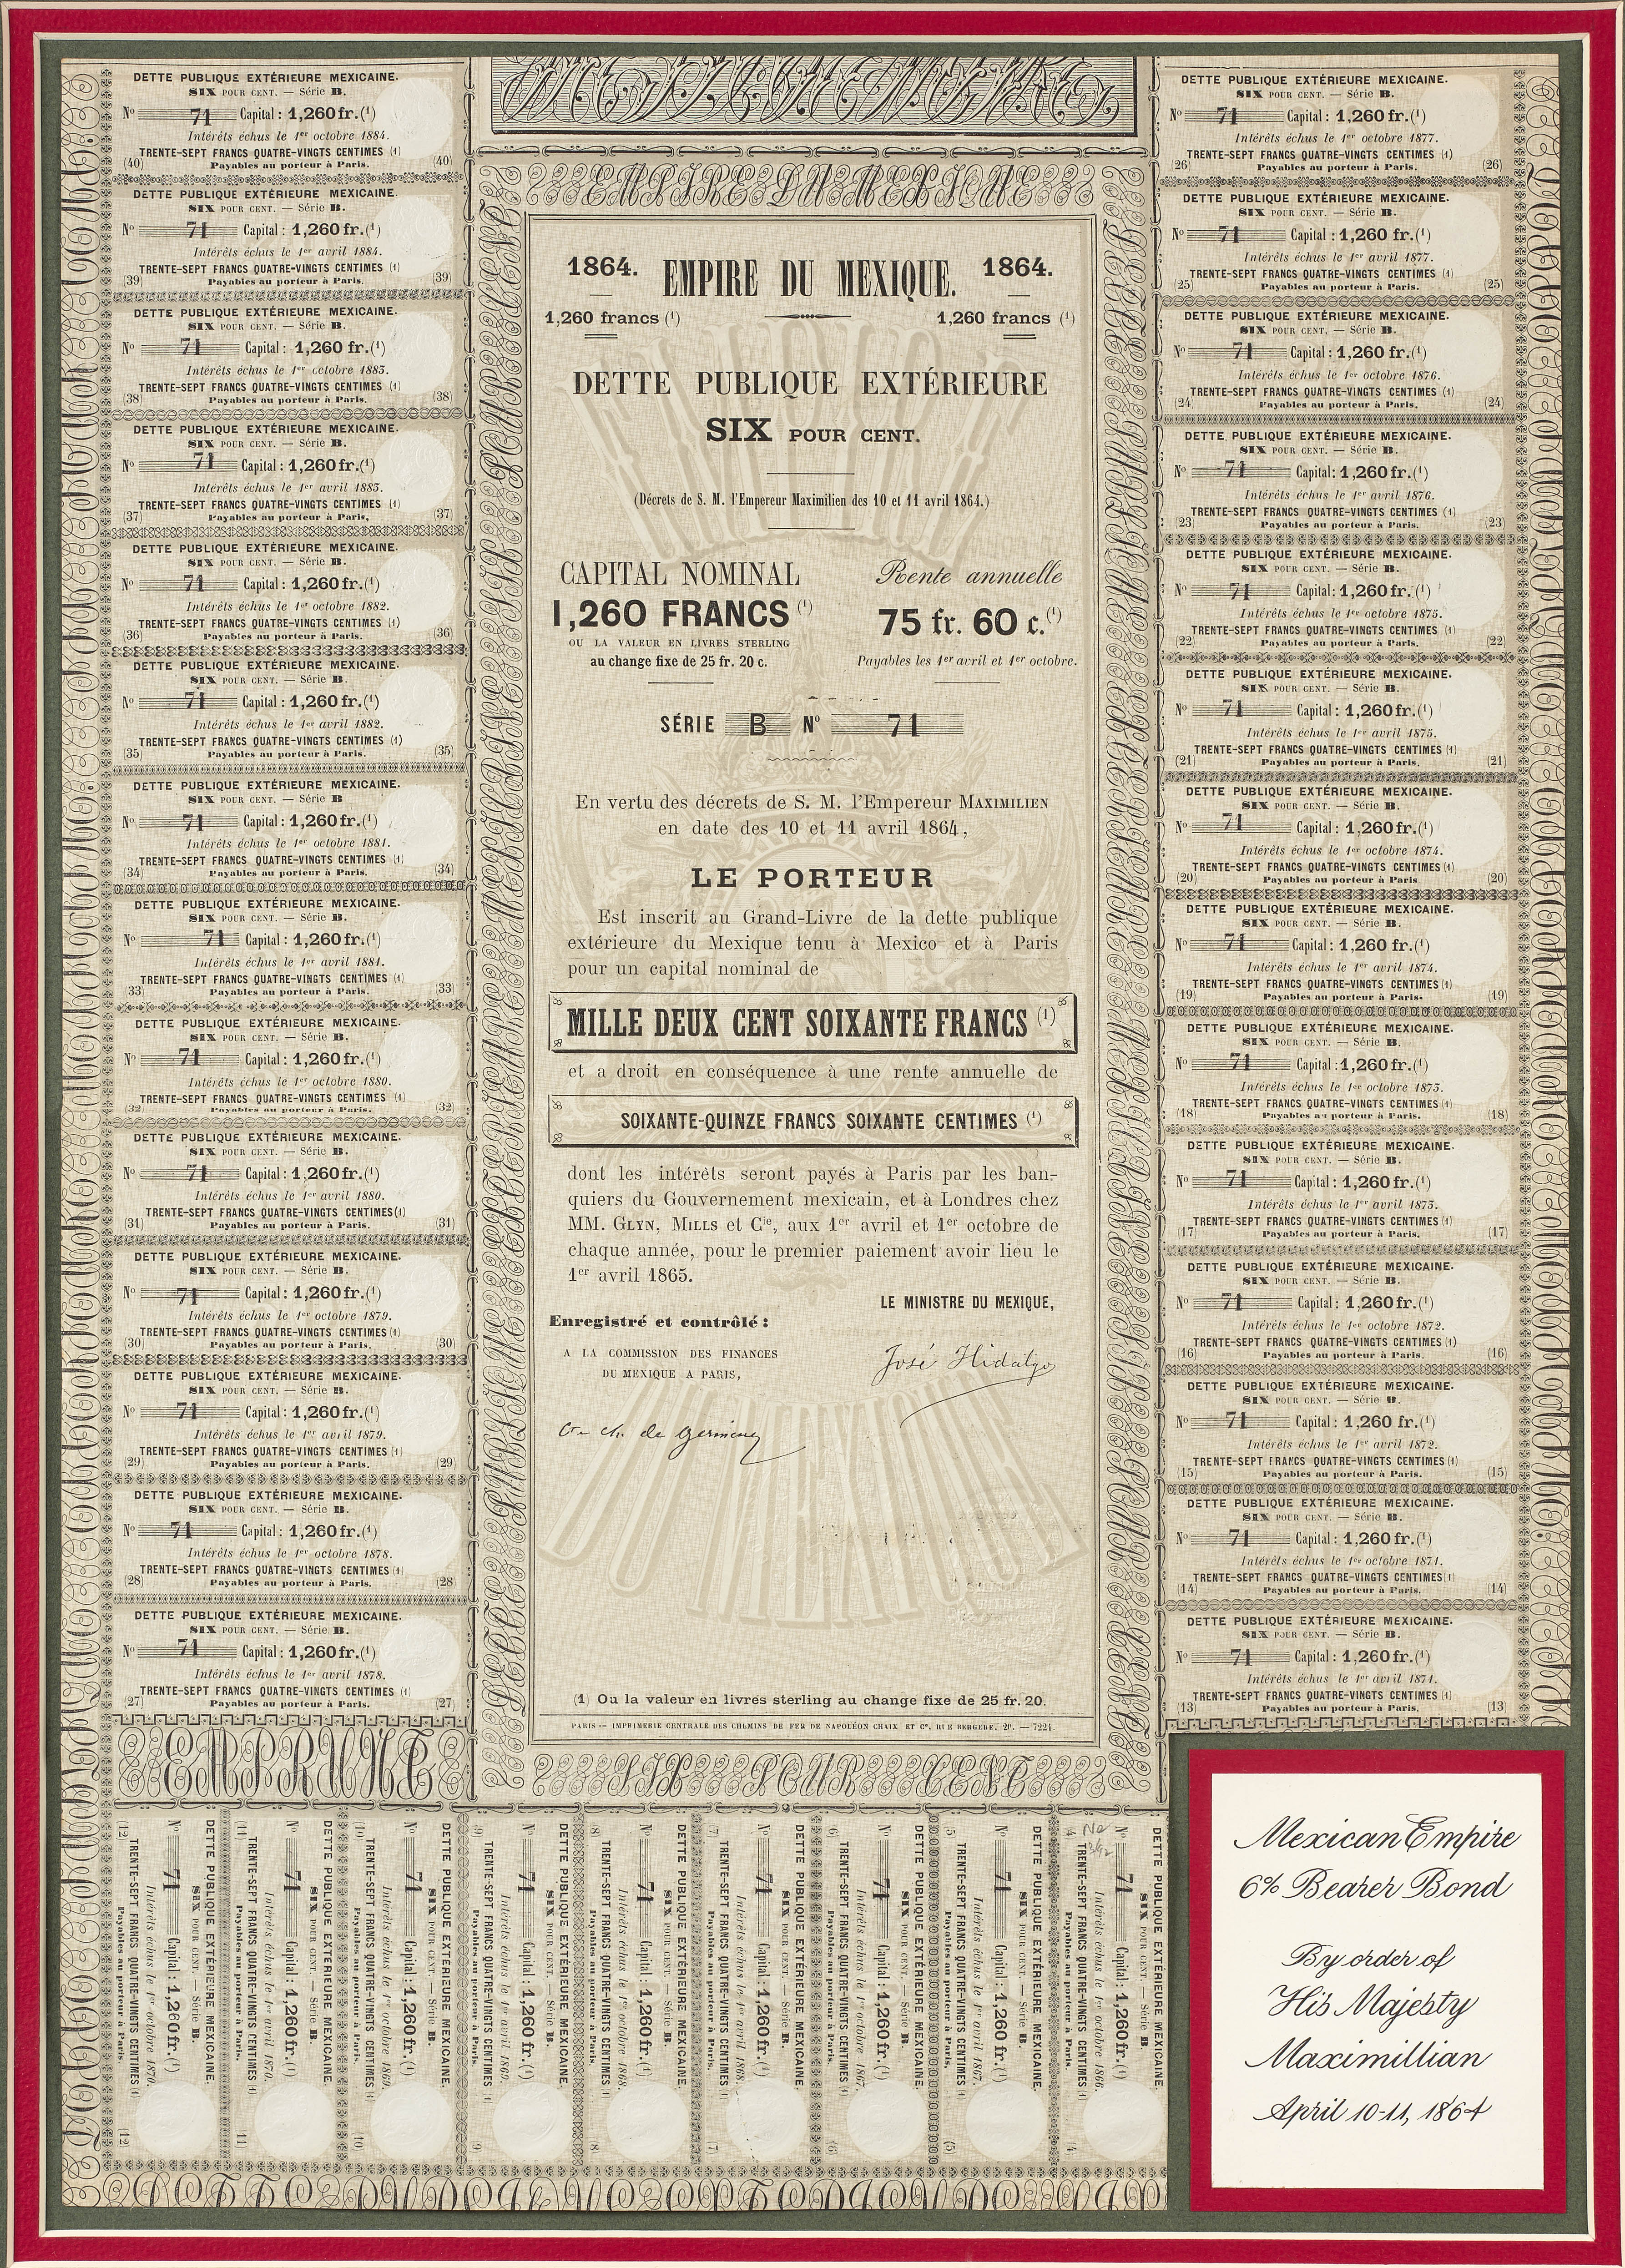 DETTE PUBLIQUE EXTÉRIEURE MEXICAINE.
SIX POUR CENT. — Série B.
No 71 Capital : 1,260 fr. (1)
Intérêts échus le 1er octobre 1884.
TRENTE-SEPT FRANCS QUATRE-VINGTS CENTIMES (1)
(40) Payables au porteur à Paris. (40)
DETTE PUBLIQUE EXTÉRIEURE MEXICAINE.
SIX POUR CENT. — Série B.
No 71 Capital : 1,260 fr. (1)
Intérêts échus le 1er avril 1884.
TRENTE-SEPT FRANCS QUATRE-VINGTS CENTIMES (1)
(39) Payables au porteur à Paris. (39)
DETTE PUBLIQUE EXTÉRIEURE MEXICAINE.
SIX POUR CENT. — Série B.
No 71 Capital : 1,260 fr. (1)
Intérêts échus le 1er octobre 1883.
TRENTE-SEPT FRANCS QUATRE-VINGTS CENTIMES (1)
(38) Payables au porteur à Paris. (38)
DETTE PUBLIQUE EXTÉRIEURE MEXICAINE.
SIX POUR CENT. — Série B.
No 71 Capital : 1,260 fr. (1)
Intérêts échus le 1er avril 1883.
TRENTE-SEPT FRANCS QUATRE-VINGTS CENTIMES (1)
(37) Payables au porteur à Paris, (37)
DETTE PUBLIQUE EXTÉRIEURE MEXICAINE.
SIX POUR CENT. — Série B.
No 71 Capital : 1,260 fr. (1)
Intérêts échus le 1er octobre 1882.
TRENTE-SEPT FRANCS QUATRE-VINGTS CENTIMES (1)
(36) Payables au porteur à Paris. (36)
DETTE PUBLIQUE EXTÉRIEURE MEXICAINE.
SIX POUR CENT. — Série B.
No 71 Capital : 1,260 fr. (1)
Intérêts échus le 1er avril 1882.
TRENTE-SEPT FRANCS QUATRE-VINGTS CENTIMES (1)
(35) Payables au porteur à Paris. (35)
DETTE PUBLIQUE EXTÉRIEURE MEXICAINE.
SIX POUR CENT. — Série B
No 71 Capital : 1,260 fr. (1)
Intérêts échus le 1er octobre 1881.
TRENTE-SEPT FRANCS QUATRE-VINGTS CENTIMES (1)
(34) Payables au porteur à Paris. (34)
DETTE PUBLIQUE EXTÉRIEURE MEXICAINE.
SIX POUR CENT. — Série B.
No 71 Capital : 1,260 fr. (1)
Intérêts échus le 1er avril 1881.
TRENTE-SEPT FRANCS QUATRE-VINGTS CENTIMES (1)
33) Payables au porteur à Paris. (33)
DETTE PUBLIQUE EXTÉRIEURE MEXICAINE.
SIX POUR CENT. — Série B.
No 71 Capital : 1,260 fr. (1)
Intérêts échus le 1er octobre 1880.
TRENTE-SEPT FRANCS QUATRE-VINGTS CENTIMES (1)
(32) Payables au porteur à Paris. (32)
DETTE PUBLIQUE EXTÉRIEURE MEXICAINE.
SIX POUR CENT. — Série B.
No 71 Capital : 1,260 fr. (1)
Intérêts échus le 1er avril 1880.
TRENTE-SEPT FRANCS QUATRE-VINGTS CENTIMES (1)
(31) Payables au porteur à Paris. (31)
DETTE PUBLIQUE EXTÉRIEURE MEXICAINE.
SIX POUR CENT. — Série B.
No 71 Capital : 1,260 fr. (1)
Intérêts échus le 1er octobre 1879.
TRENTE-SEPT FRANCS QUATRE-VINGTS CENTIMES (1)
(30) Payables au porteur à Paris. (30)
DETTE PUBLIQUE EXTÉRIEURE MEXICAINE.
SIX POUR CENT. — Série B.
No 71 Capital : 1,260 fr. (1)
Intérêts échus le 1er avril 1879.
TRENTE-SEPT FRANCS QUATRE-VINGTS CENTIMES (1)
(29) Payables au porteur à Paris. (29)
DETTE PUBLIQUE EXTÉRIEURE MEXICAINE.
SIX POUR CENT. — Série B.
No 71 Capital : 1,260 fr. (1)
Intérêts échus le 1er octobre 1878.
TRENTE-SEPT FRANCS QUATRE-VINGTS CENTIMES (1)
(28) Payables au porteur à Paris. (28
DETTE PUBLIQUE EXTÉRIEURE MEXICAINE.
SIX POUR CENT. — Série B.
No 71 Capital : 1,260 fr. (1)
Intérêts échus le 1er avril 1878.
TRENTE-SEPT FRANCS QUATRE-VINGTS CENTIMES (1)
(27) Payables au porteur à Paris. (27)
EMPRUNT
EMPIRE DU MEXIQUE
1864. EMPIRE DU MEXIQUE. 1864.
1,260 francs (1) 1,260 francs (1)
DETTE PUBLIQUE EXTÉRIEURE
SIX POUR CENT.
(Décrets de S. M. l'Empereur Maximilien des 10 et 11 avril 1864.)
CAPITAL NOMINAL Rente annuelle
1,260 FRANCS (1) 75 fr. 60 c. (1)
OU LA VALEUR EN LIVRES STERLING
au change fixe de 25 fr. 20 c. Payables les 1er avril et 1er octobre.
SÉRIE B No 71
En vertu des décrets de S. M. l'Empereur MAXIMILIEN
en date des 10 et 11 avril 1864,
LE PORTEUR
Est inscrit au Grand-Livre de la dette publique
extérieure du Mexique tenu à Mexico et à Paris
pour un capital nominal de
MILLE DEUX CENT SOIXANTE FRANCS (1)
et a droit en conséquence à une rente annuelle de
SOIXANTE-QUINZE FRANCS SOIXANTE CENTIMES (1)
dont les intérêts seront payés à Paris par les ban-
quiers du Gouvernement mexicain, et à Londres chez
MM. GLYN, MILLS et Cie, aux 1er avril et 1er octobre de
chaque année, pour le premier paiement avoir lieu le
1er avril 1865.
LE MINISTRE DU MEXIQUE,
Enregistré et contrôlé :
A LA COMMISSION DES FINANCES
DU MEXIQUE A PARIS,
José Hidalgo
Cte ch. de Germiny
EMPIRE
DU MEXIQUE
(1) Ou la valeur en livres sterling au change fixe de 25 fr. 20.
PARIS. — IMPRIMERIE CENTRALE DES CHEMINS DE FER DE NAPOLÉON CHAIX ET Ce, RUE BERGERE, 20. — 7221.
SIX POUR CENT
DETTE PUBLIQUE EXTÉRIEURE MEXICAINE.
SIX POUR CENT. — Série B.
No 71 Capital : 1,260 fr. (1)
Intérêts échus le 1er octobre 1877.
TRENTE-SEPT FRANCS QUATRE-VINGTS CENTIMES (1)
26) Payables au porteur à Paris. (26)
DETTE PUBLIQUE EXTÉRIEURE MEXICAINE.
SIX POUR CENT. — Série B.
No 71 Capital : 1,260 fr. (1)
Intérêts échus le 1er avril 1877.
TRENTE-SEPT FRANCS QUATRE-VINGTS CENTIMES (1)
(25) Payables au porteur à Paris. (25)
DETTE PUBLIQUE EXTÉRIEURE MEXICAINE.
SIX POUR CENT. — Série B.
No 71 Capital : 1,260 fr. (1)
Intérêts échus le 1er octobre 1876.
TRENTE-SEPT FRANCS QUATRE-VINGTS CENTIMES (1)
(24) Payables au porteur à Paris. (24)
DETTE PUBLIQUE EXTÉRIEURE MEXICAINE.
SIX POUR CENT. — Série B.
No 71 Capital : 1,260 fr. (1)
Intérêts échus le 1er avril 1876.
TRENTE-SEPT FRANCS QUATRE-VINGTS CENTIMES (1)
(23) Payables au porteur à Paris. (23)
DETTE PUBLIQUE EXTÉRIEURE MEXICAINE.
SIX POUR CENT. — Série B.
No 71 Capital : 1,260 fr. (1)
Intérêts échus le 1er octobre 1875.
TRENTE-SEPT FRANCS QUATRE-VINGTS CENTIMES (1)
(22) Payables au porteur à Paris. (22)
DETTE PUBLIQUE EXTÉRIEURE MEXICAINE.
SIX POUR CENT. — Série B.
No 71 Capital : 1,260 fr. (1)
Intérêts échus le 1er avril 1875.
TRENTE-SEPT FRANCS QUATRE-VINGTS CENTIMES (1)
(21) Payables au porteur à Paris. (21)
DETTE PUBLIQUE EXTÉRIEURE MEXICAINE.
SIX POUR CENT. — Série B.
No 71 Capital : 1,260 fr. (1)
Intérêts échus le 1er octobre 1874.
TRENTE-SEPT FRANCS QUATRE-VINGTS CENTIMES (1)
(20) Payables au porteur à Paris (20)
DETTE PUBLIQUE EXTÉRIEURE MEXICAINE.
SIX POUR CENT. — Série B.
No 71 Capital : 1,260 fr. (1)
Intérêts échus le 1er avril 1874.
TRENTE-SEPT FRANCS QUATRE-VINGTS CENTIMES (1)
(19) Payables au porteur à Paris. (19)
DETTE PUBLIQUE EXTÉRIEURE MEXICAINE.
SIX POUR CENT. — Série B.
No 71 Capital : 1,260 fr. (1)
Intérêts échus le 1er octobre 1873.
TRENTE-SEPT FRANCS QUATRE-VINGTS CENTIMES (1)
(18) Payables au porteur à Paris. (18)
DETTE PUBLIQUE EXTÉRIEURE MEXICAINE.
SIX POUR CENT. — Série B.
No 71 Capital : 1,260 fr. (1)
Intérêts échus le 1er avril 1873.
TRENTE-SEPT FRANCS QUATRE-VINGTS CENTIMES (1)
(17) Payables au porteur à Paris. (17)
DETTE PUBLIQUE EXTÉRIEURE MEXICAINE.
SIX POUR CENT. — Série B.
No 71 Capital : 1,260 fr. (1)
Intérêts échus le 1er octobre 1872.
TRENTE-SEPT FRANCS QUATRE-VINGTS CENTIMES (1)
(16) Payables au porteur à Paris. (16)
DETTE PUBLIQUE EXTÉRIEURE MEXICAINE.
SIX POUR CENT. — Série B.
No 71 Capital : 1,260 fr. (1)
Intérêts échus le 1er avril 1872.
TRENTE-SEPT FRANCS QUATRE-VINGTS CENTIMES (1)
(15) Payables au porteur à Paris. (15)
DETTE PUBLIQUE EXTÉRIEURE MEXICAINE.
SIX POUR CENT. — Série B.
No 71 Capital : 1,260 fr. (1)
Intérêts échus le 1er octobre 1871.
TRENTE-SEPT FRANCS QUATRE-VINGTS CENTIMES (1)
(14) Payables au porteur à Paris. (14)
DETTE PUBLIQUE EXTÉRIEURE MEXICAINE.
SIX POUR CENT. — Série B.
No 71 Capital : 1,260 fr. (1)
Intérêts échus le 1er avril 1871.
TRENTE-SEPT FRANCS QUATRE-VINGTS CENTIMES (1)
(13) Payables au porteur à Paris. (13
DETTE PUBLIQUE EXTÉRIEURE MEXICAINE.
SIX POUR CENT. — Série B.
No 71 Capital : 1,260 fr. (1)
Intérêts échus le 1er octobre 1870.
TRENTE-SEPT FRANCS QUATRE-VINGTS CENTIMES (1)
(12) Payables au porteur à Paris. (12)
DETTE PUBLIQUE EXTÉRIEURE MEXICAINE.
SIX POUR CENT. — Série B
No 71 Capital : 1,260 fr. (1)
Intérêts échus le 1er avril 1870.
TRENTE-SEPT FRANCS QUATRE-VINGTS CENTIMES (1)
(11) Payables au porteur à Paris. 11)
DETTE PUBLIQUE EXTÉRIEURE MEXICAINE.
SIX POUR CENT. — Série B.
No 71 Capital : 1,260 fr. (1)
Intérêts échus le 1er octobre 1869.
TRENTE-SEPT FRANCS QUATRE-VINGTS CENTIMES (1)
(10) Payables au porteur à Paris. (10
DETTE PUBLIQUE EXTÉRIEURE MEXICAINE.
SIX POUR CENT. — Série B.
No 71 Capital : 1,260 fr. (1)
Intérêts échus le 1er avril 1869.
TRENTE-SEPT FRANCS QUATRE-VINGTS CENTIMES (1)
(9) Payables au porteur à Paris. 9)
DETTE PUBLIQUE EXTÉRIEURE MEXICAINE.
SIX POUR CENT. — Série B.
No 71 Capital : 1,260 fr. (1)
Intérêts échus le 1er octobre 1868.
TRENTE-SEPT FRANCS QUATRE-VINGTS CENTIMES (1)
(8) Payables au porteur à Paris. (8)
DETTE PUBLIQUE EXTÉRIEURE MEXICAINE.
SIX POUR CENT. — Série B.
No 71 Capital : 1,260 fr. (1)
Intérêts échus le 1er avril 1868.
TRENTE-SEPT FRANCS QUATRE-VINGTS CENTIMES (1)
(7 Payables au porteur à Paris. (7
DETTE PUBLIQUE EXTÉRIEURE MEXICAINE.
SIX POUR CENT. — Série B.
No 71 Capital : 1,260 fr. (1)
Intérêts échus le 1er octobre 1867.
TRENTE-SEPT FRANCS QUATRE-VINGTS CENTIMES (1)
(6) Payables au porteur à Paris. (6)
DETTE PUBLIQUE EXTÉRIEURE MEXICAINE.
SIX POUR CENT. — Série B
No 71 Capital : 1,260 fr. (1)
Intérêts échus le 1er avril 1867.
TRENTE-SEPT FRANCS QUATRE-VINGTS CENTIMES (1)
(5) Payables au porteur à Paris. (5)
DETTE PUBLIQUE EXTÉRIEURE MEXICAINE.
SIX POUR CENT. — Série B.
No 71 Capital : 1,260 fr. (1)
Intérêts échus le 1er octobre 1866.
TRENTE-SEPT FRANCS QUATRE-VINGTS CENTIMES (1)
(4 Payables au porteur à Paris. (4
No
Mexican Empire
6% Bearer Bond
By order of
His Majesty
Maximillian
April 10-11, 1864